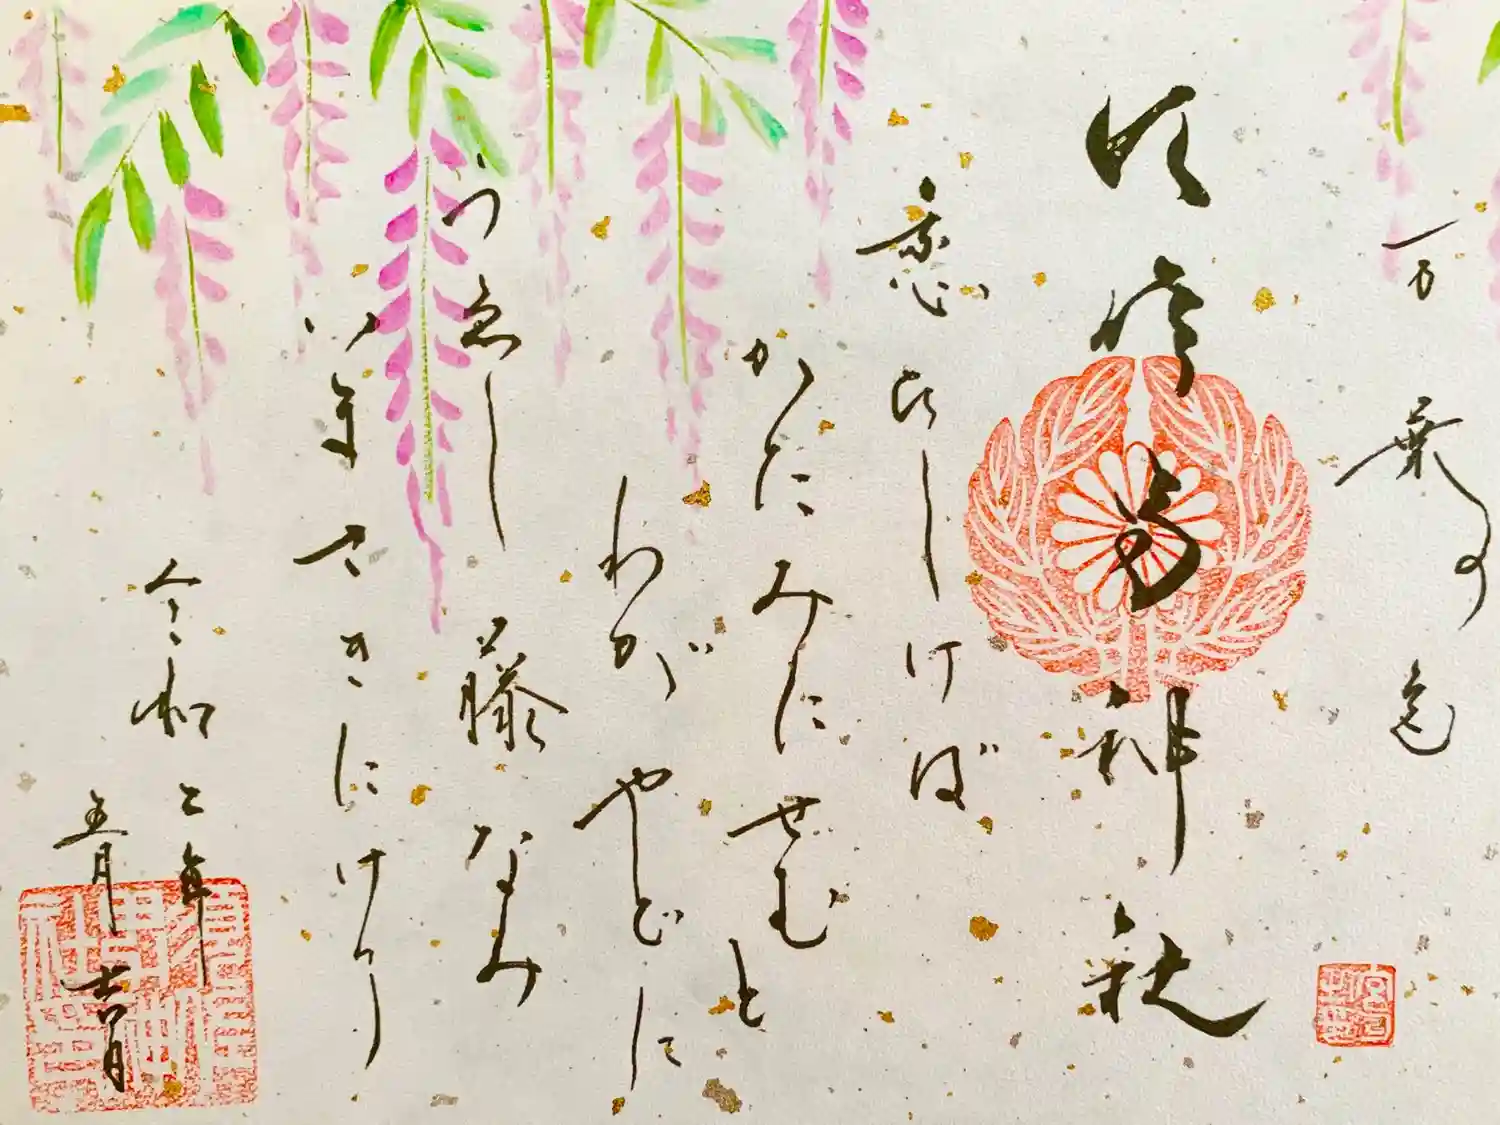 万葉の色
神社
恋ひしけば
かたみにせむと
わがやどに
うゑし 藤なみ
いまさきにけり
令和二年
五月吉月